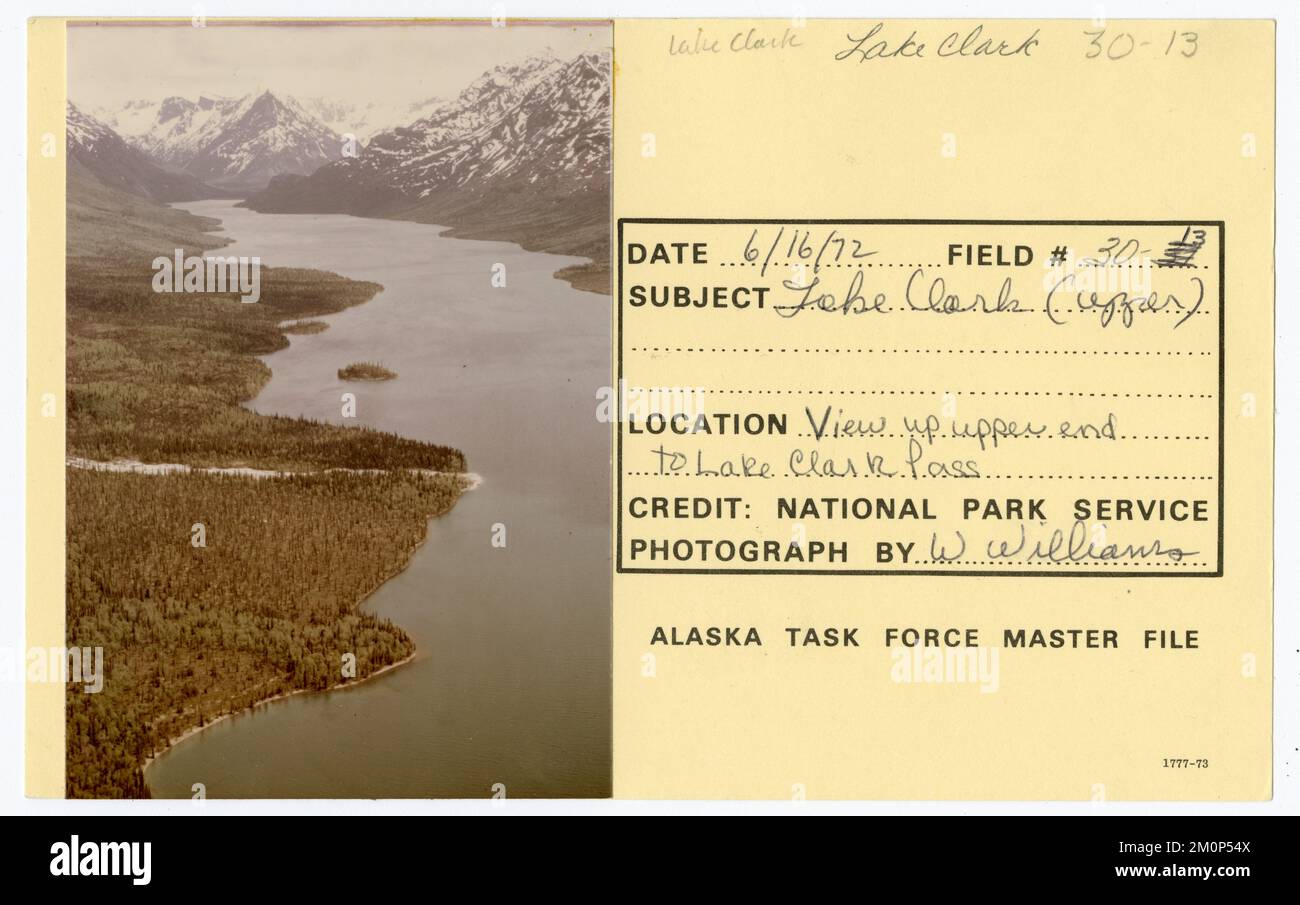 Lake Clark Lake Clark 30-13
DATE 6/16/72 FIELD # 30-13
SUBJECT Lake Clark (upper)
LOCATION View up upper end
to Lake Clark Pass
CREDIT: NATIONAL PARK SERVICE
PHOTOGRAPH BY W Williams
ALASKA TASK FORCE MASTER FILE
1777-73
alamy
Image ID: 2M0P54X
www.alamy.com